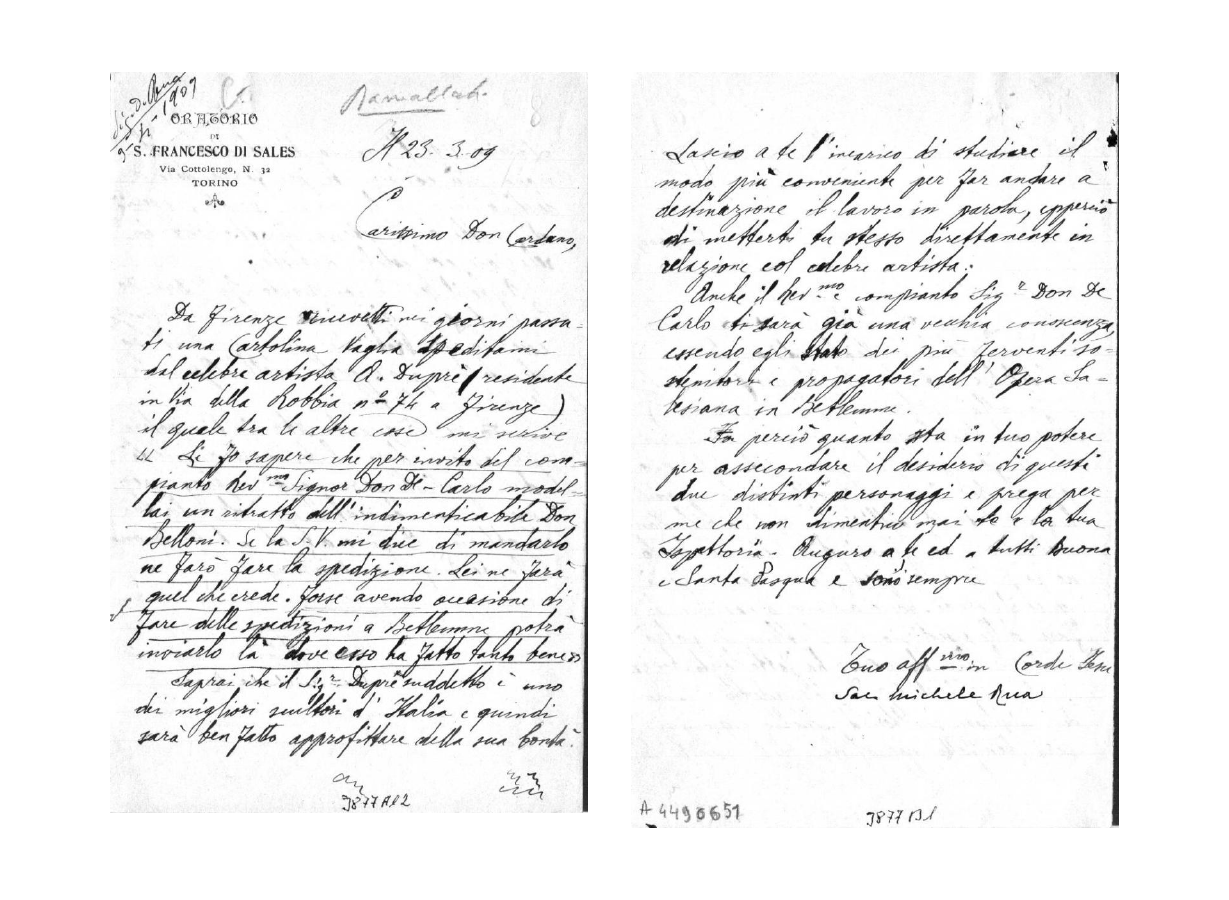 Sig. D. Rua
9-IV-1909
Ramallah
ORATORIO
DI
S. FRANCESCO DI SALES
Via Cottolengo, N. 32
TORINO
Il 23-3-09
Carissimo Don Cardano,
Da Firenze ricevetti nei giorni passa-
ti una Cartolina Vaglia speditami
dal celebre artista A. Duprè (residente
in Via della Robbia n° 74 a Firenze)
il quale tra le altre cose mi scrive
"Le fo sapere che per invito del com-
pianto Rev.mo Signor Don De-Carlo model-
lai un ritratto dell'indimenticabile Don
Belloni. Se la S.V. mi dice di mandarlo
ne farò fare la spedizione. Lei ne farà
quel che crede. Forse avendo occasione di
fare delle spedizioni a Betlemme potrà
inviarlo là dove esso ha fatto tanto bene"
Saprai che il Sigr. Duprè suddetto è uno
dei migliori scultori d'Italia e quindi
sarà ben fatto approfittare della sua bontà.
3877 A12
Lascio a te l'incarico di studiare il
modo più conveniente per far andare a
destinazione il lavoro in parola, epperciò
di metterti tu stesso direttamente in
relazione col celebre artista.
Anche il Rev.mo e compianto Sigr. Don De
Carlo ti sarà già una vecchia conoscenza,
essendo egli stato dei più ferventi so-
stenitori e propagatori dell'Opera Sa-
lesiana in Betlemme.
Fa perciò quanto sta in tuo potere
per assecondare il desiderio di questi
due distinti personaggi e prega per
me che non dimentico mai te e la tua
Ispettoria. Auguro a te ed a tutti buona
e Santa Pasqua e sono sempre
Tuo aff.mo in Corde Jesu
Sac Michele Rua
A 4490651
3877 B1